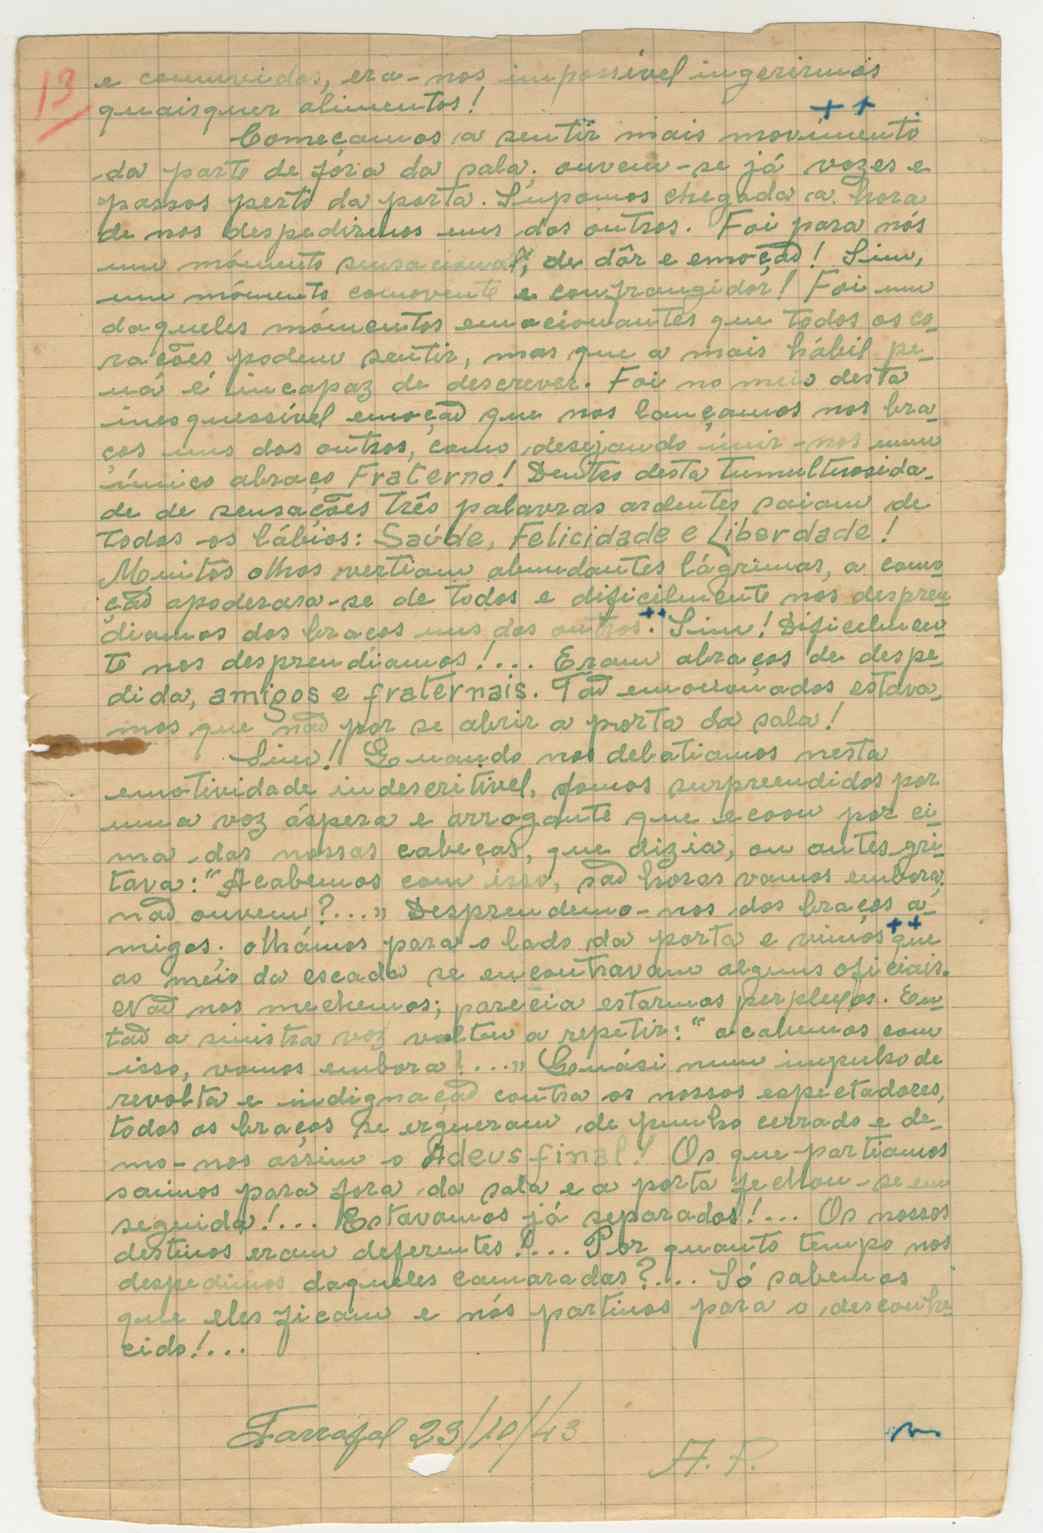 13
e comovidos, era-nos impossível ingerirmos
quaisquer alimentos!
Começamos a sentir mais movimento
da parte de fóra da sala; ouvem-se já vozes e
passos perto da porta. Supomos chegada a hora
de nos despedirmos uns dos outros. Foi para nós
um mómento sensacional, de dôr e emoção! Sim,
um mómento comovente e confrangidor! Foi um
daqueles mómentos emocionantes que todos os co-
rações podem sentir, mas que a mais hábil pe-
ná é incapaz de descrever. Foi no meio desta
inesquessível emoção que nos lançamos nos bra-
ços uns dos outros, como desejando únir-nos num
único abraço Fraterno! Dentro desta tumultuosida-
de de sensações três palavras ardentes saiam de
todos os lábios: Saúde, Felicidade e Liberdade!
Muitos olhos vertiam abundantes lágrimas, a como-
ção apoderara-se de todos e dificilmente nos despren-
diamos dos braços uns dos outros. Sim! Dificilmen-
te nos desprendiamos!... Eram abraços de despe-
dida, amigos e fraternais. Tão emocionados estáva-
mos que não por se abrir a porta da sala!
Sim! Quando nos debatiamos nesta
emotividade indescritível, fomos surpreendidos por
uma voz áspera e arrogante que ecoou por ci-
ma das nossas cabeças, que dizia, ou antes gri-
tava: "Acabemos com isso, são horas vamos embora,
não ouvem?..." Desprendemo-nos dos braços a-
migos; olhámos para o lado da porta e vimos que
ao meio da escada se encontravam alguns oficiais.
Não nos mechemos; parecia estarmos perplexos. En-
tão a sinistra voz voltou a repetir: "acabemos com
isso, vamos embora!..." Quási num impulso de
revolta e indignação contra os nossos espectadores,
todos os braços se ergueram de punho cerrado e de-
mo-nos assim o Adeus final! Os que partiamos
saimos para fora da sala e a porta fechou-se em
seguida!... Estavamos já separados!... Os nossos
destinos eram deferentes!... Por quanto tempo nos
despedimos daqueles camaradas?... Só sabemos
que eles ficam e nós partimos para o desconhe-
cido!...
Tarrafal 23/10/43
A. P.